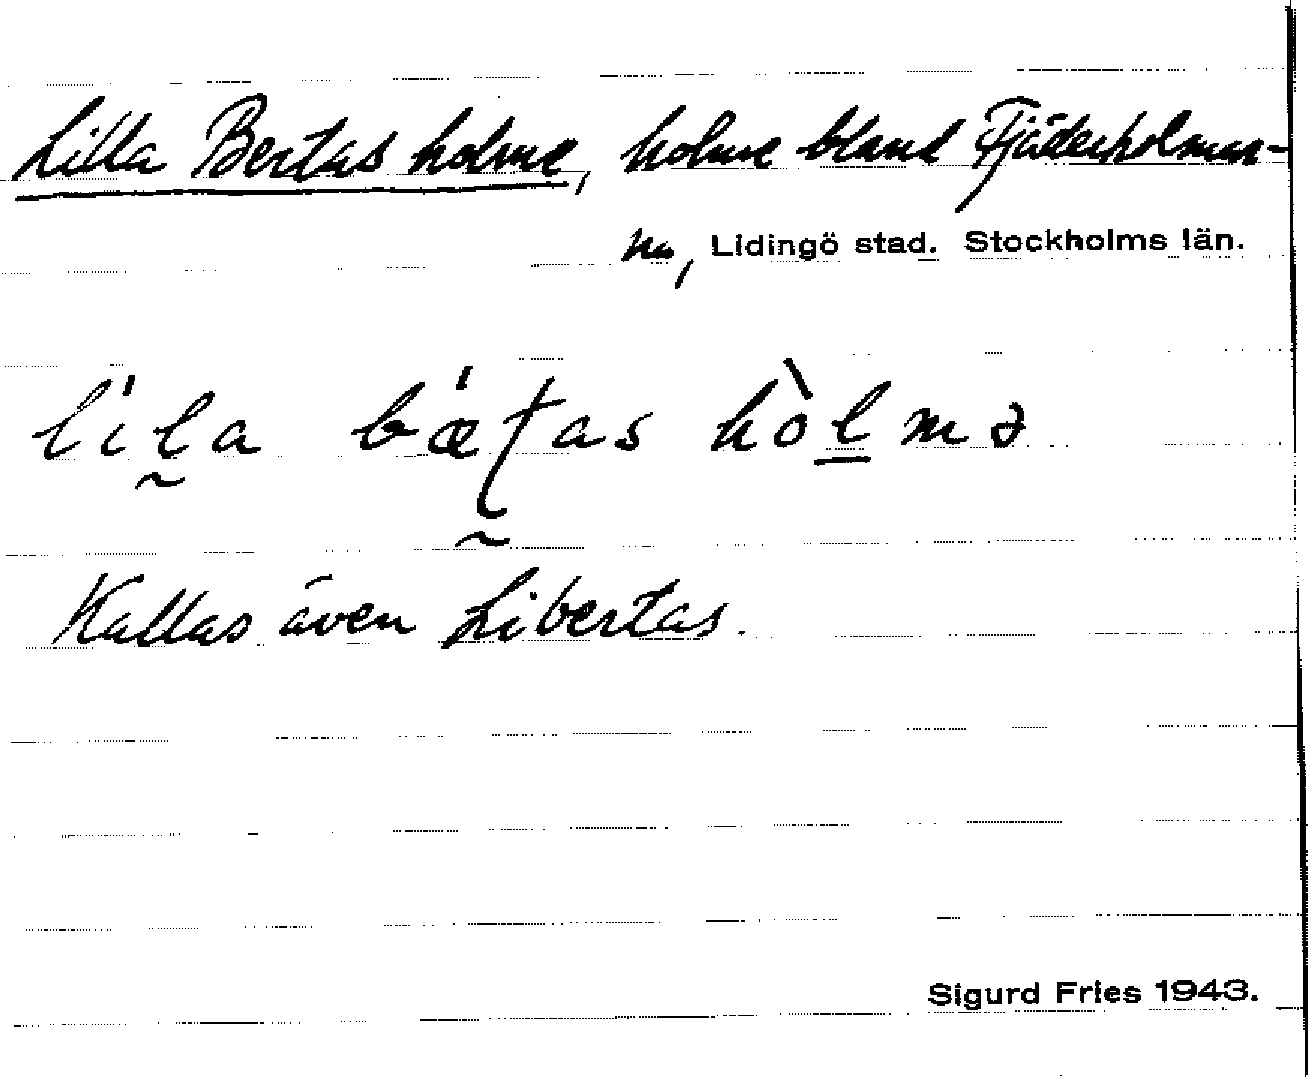 Lilla Bertas holme, holme bland Fjäderholmar-
na, Lidingö stad. Stockholms län.
lí̀l̰a bǽt̰as hòl̲mə
Kallas även Libertas.
Sigurd Fries 1943.